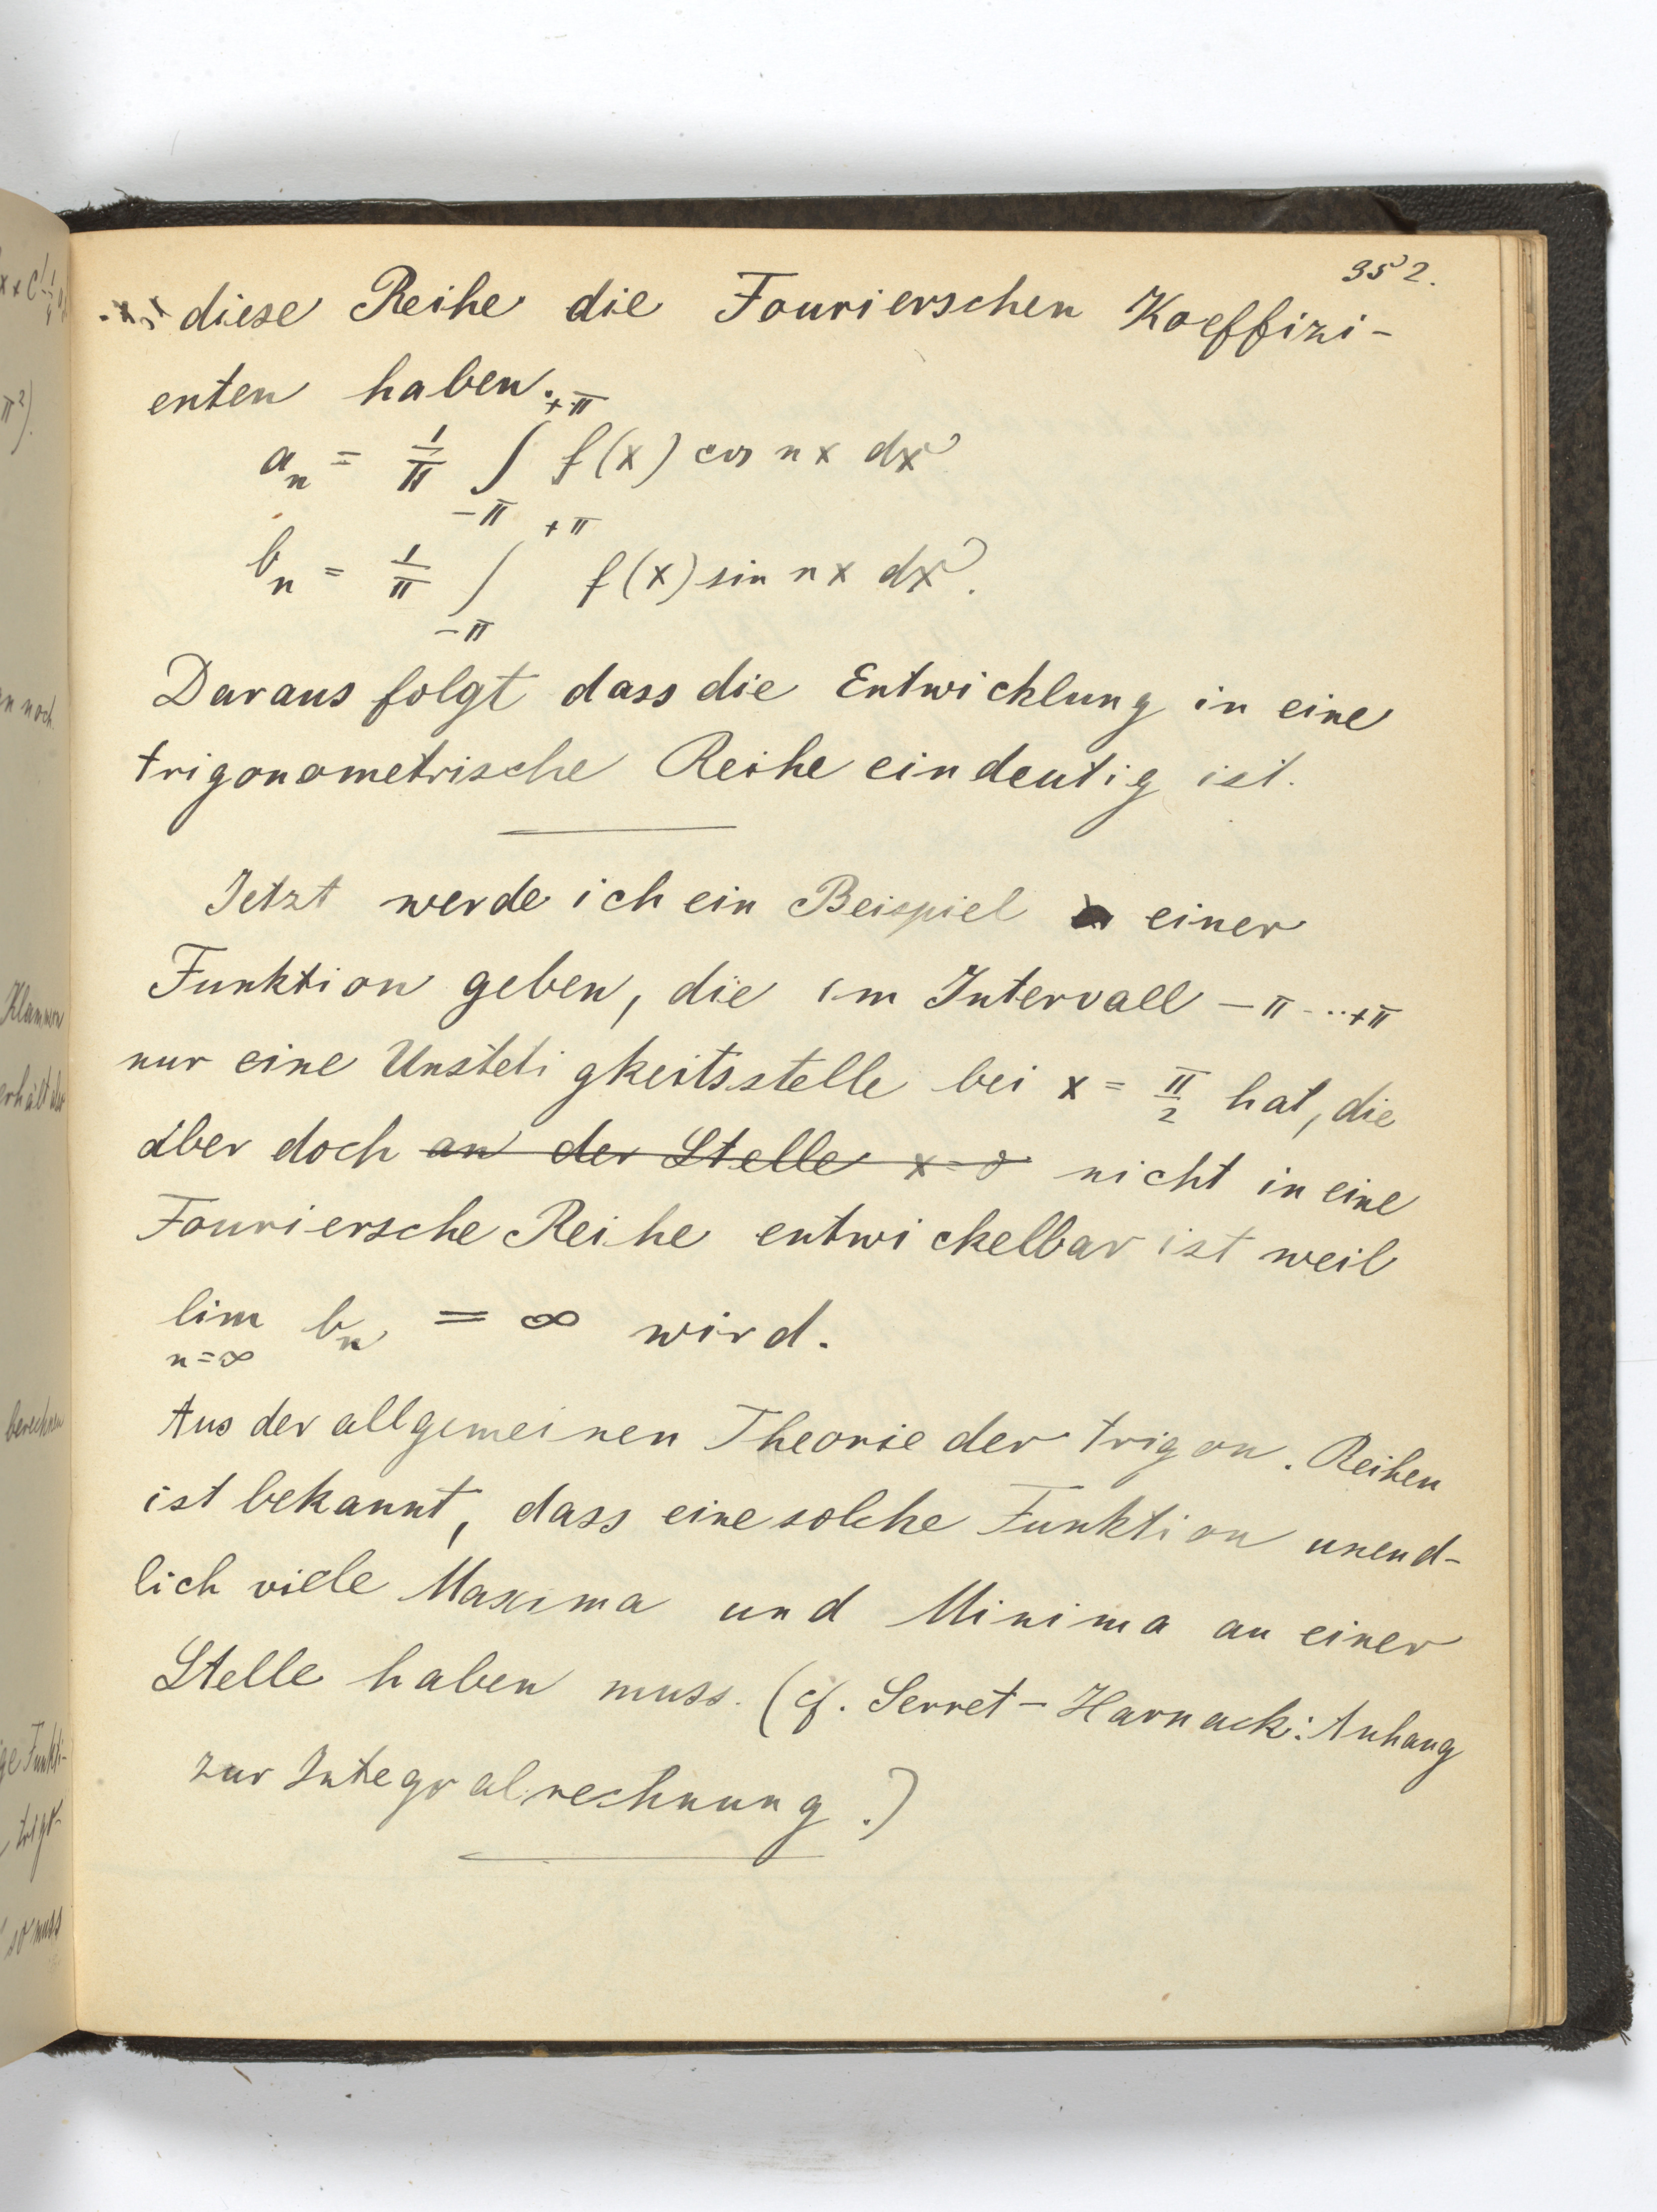 352.
diese Reihe die Fourierschen Koeffizi-
enten haben.
a_n = 1/π ∫_{-π}^{+π} f(x) cos nx dx
b_n = 1/π ∫_{-π}^{+π} f(x) sin nx dx.
Daraus folgt dass die Entwicklung in eine
trigonometrische Reihe eindeutig ist.
Jetzt werde ich ein Beispiel einer
Funktion geben, die im Intervall -π...+π
nur eine Unstetigkeitsstelle bei x = π/2 hat, die
aber doch an der Stelle x=0 nicht in eine
Fouriersche Reihe entwickelbar ist weil
lim_{n=∞} b_n = ∞ wird.
Aus der allgemeinen Theorie der trigon. Reihen
ist bekannt, dass eine solche Funktion unend-
lich viele Maxima und Minima an einer
Stelle haben muss. (cf. Serret-Harnack: Anhang
zur Integralrechnung.)
n noch
Klammern
erhält
berechnen
ge Funkti-
trigo-
so muss